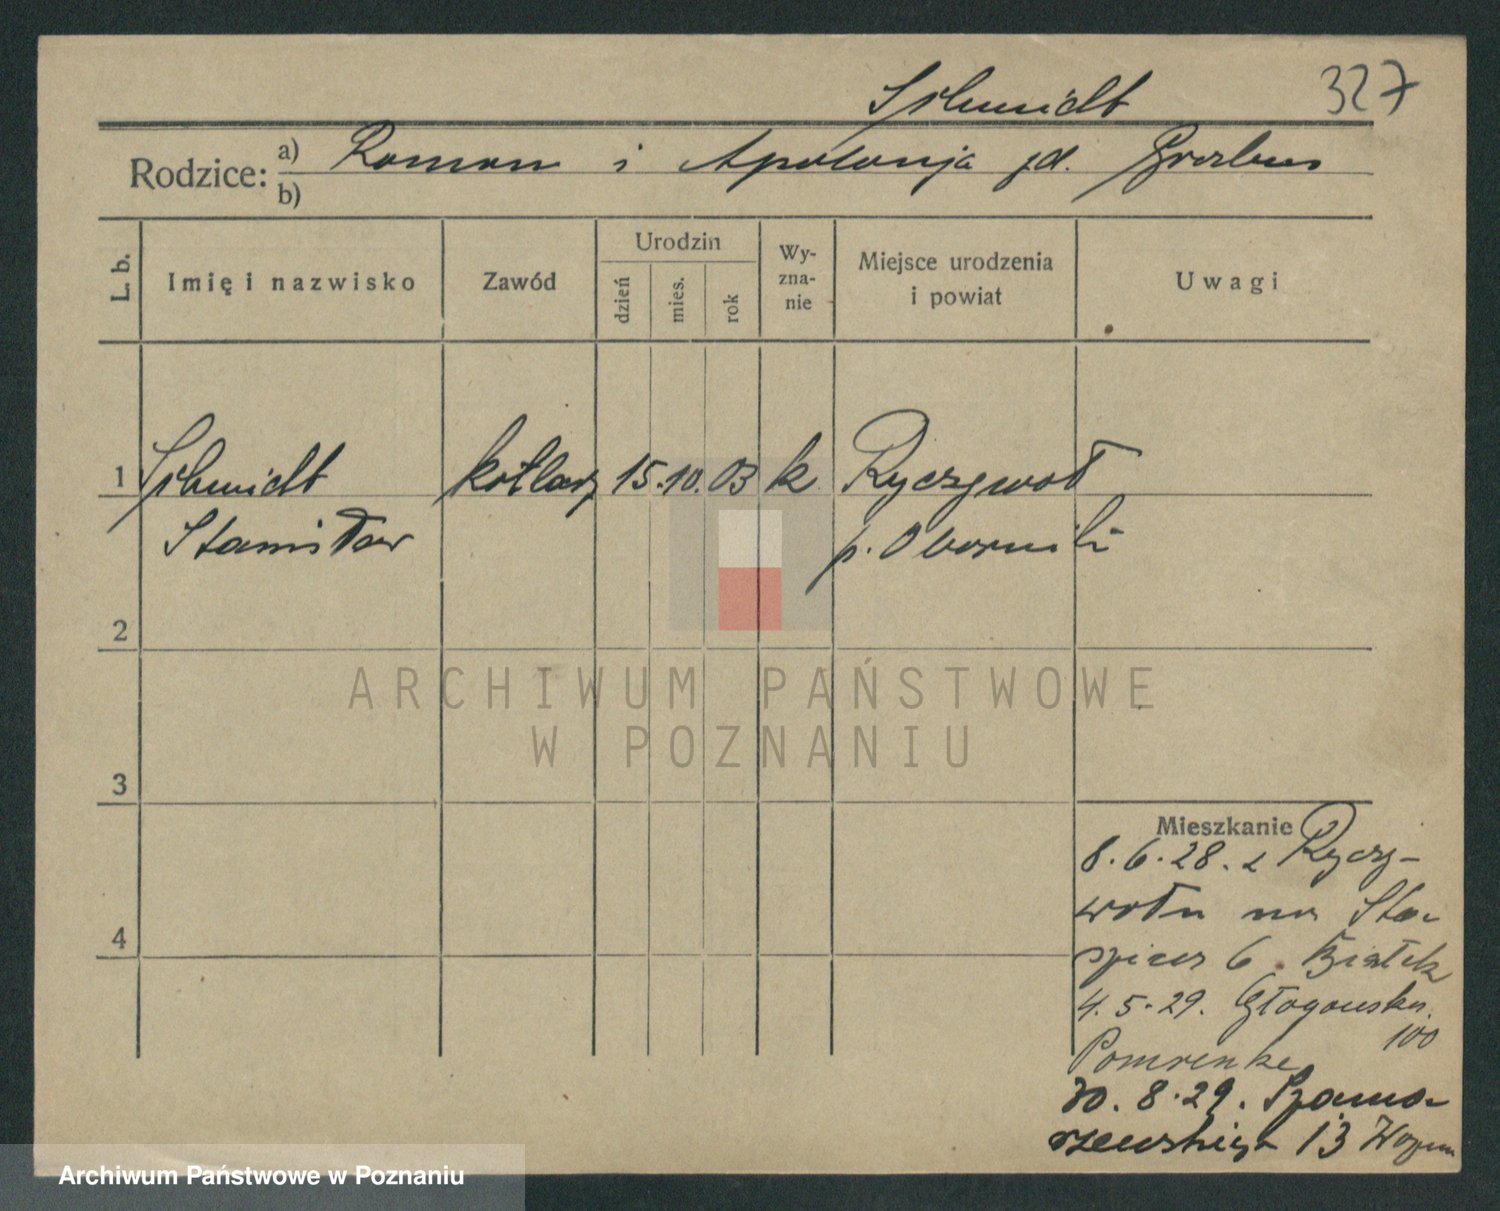 Schmidt 327
Rodzice: a) Roman i Apolonja zd.
b)
L. b. Imię i nazwisko Zawód Urodzin dzień mies. rok Wy-zna-nie Miejsce urodzenia i powiat Uwagi
1 Schmidt kotlarz 15. 10. 03 k Ryczywół
Stanisław p. Oborniki
2
ARCHIWUM PAŃSTWOWE
W POZNANIU
3
Mieszkanie
8.6.28. z Rycz-
wołu na Sta-
szica 6. Białek
4
4.5.29. Głogowska
100
Pomrenke
30.8.29. Szama-
rzewskiego 13
Archiwum Państwowe w Poznaniu